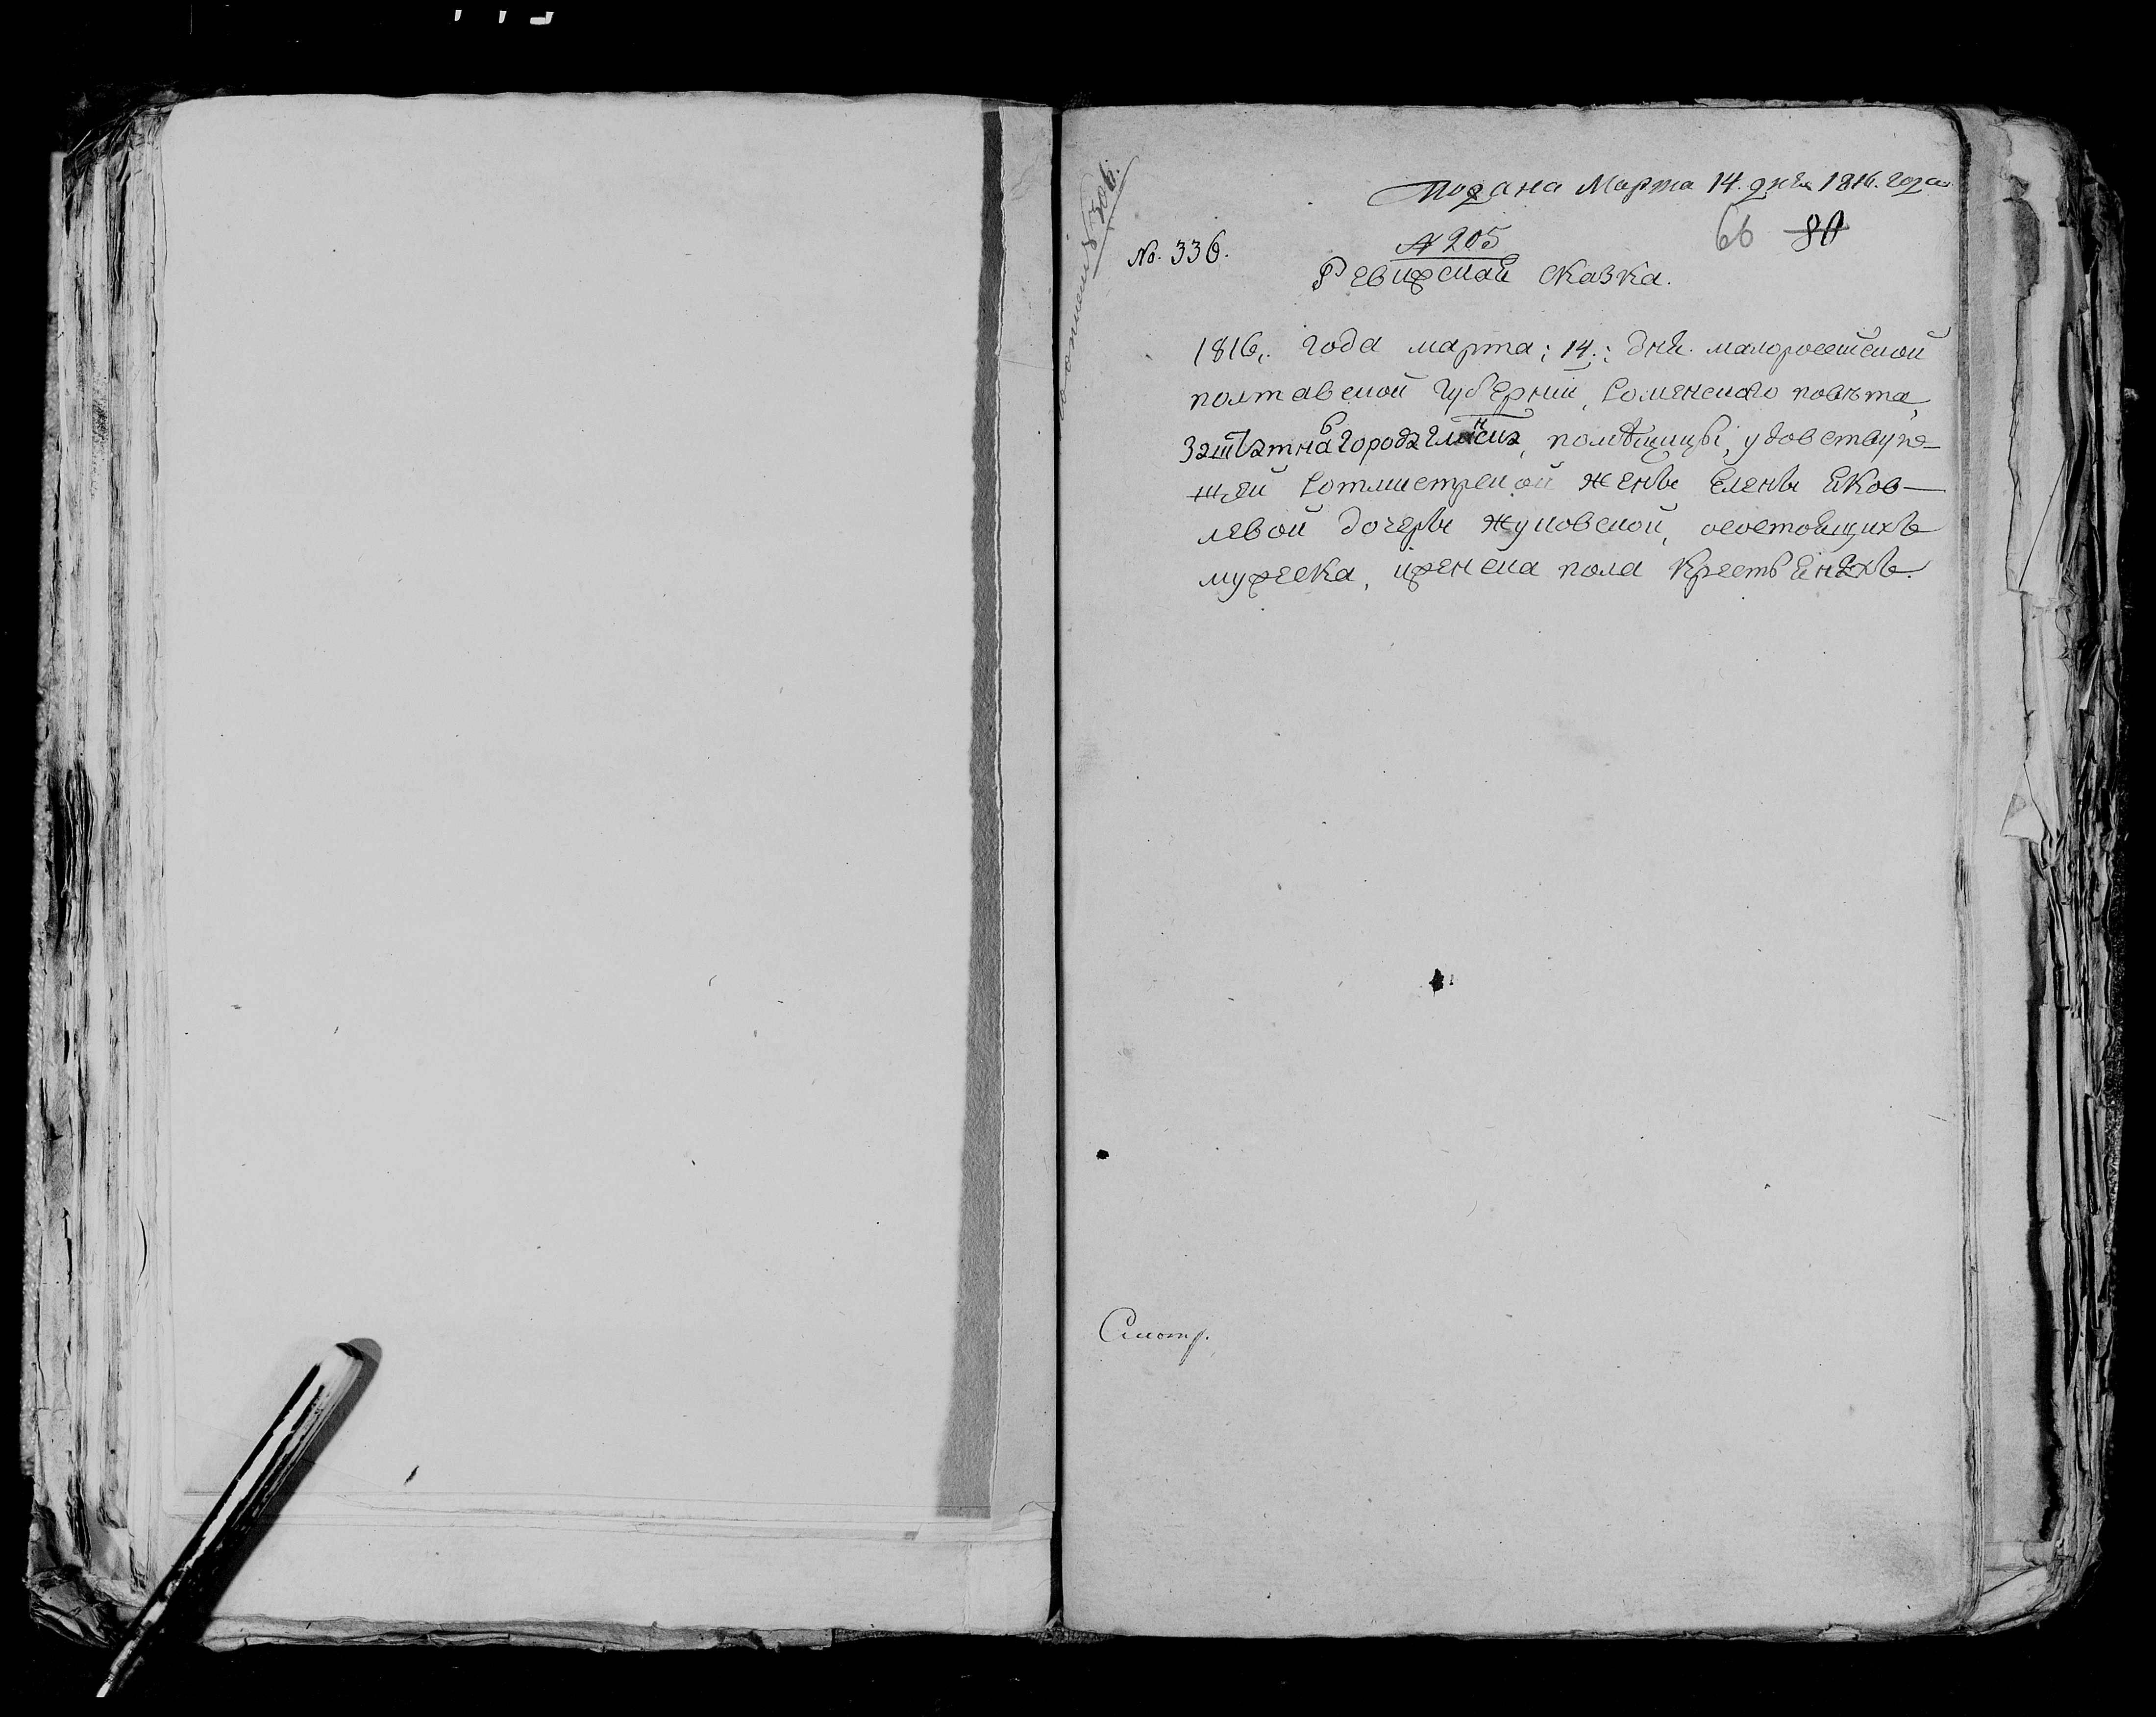 № 306.
Подана Марта 14. дня 1816. года
66 80
No. 336.
№ 205
Ревизская сказка.
1816, года марта; 14.; дня. малороссийской
полтавской губернии, роменского повѣта,
заштатна города глинска, помѣщицы, удовствую-
щей ротмистрской жены Елены Яков-
левой дочеры Жуковской, осостоящихъ
мужеска, иженска пола Крестьянехъ.
Смотр.